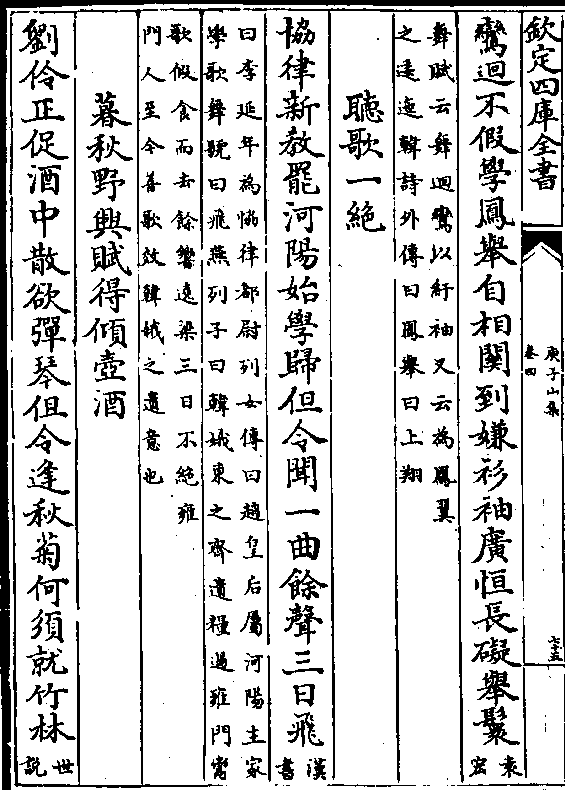 欽定四庫全書
庾子山集
卷四
七十五
鸞迴不假學鳳舉自相關到嫌衫袖廣恒長礙舉鬟袁宏
舞賦云舞迴鸞以紆袖又云為鳳翼
之逶迤韓詩外傳曰鳳舉曰上翔
聽歌一絶
協律新教罷河陽始學歸但令聞一曲餘聲三日飛漢書
曰李延年為協律都尉列女傳曰趙皇后屬河陽主家
學歌舞號曰飛燕列子曰韓娥東之齊遺糧過雍門鬻
歌假食而去餘響遶梁三日不絶雍
門人至今善歌效韓娥之遺意也
暮秋野興賦得傾壺酒
劉伶正促酒中散欲彈琴但令逢秋菊何須就竹林世說